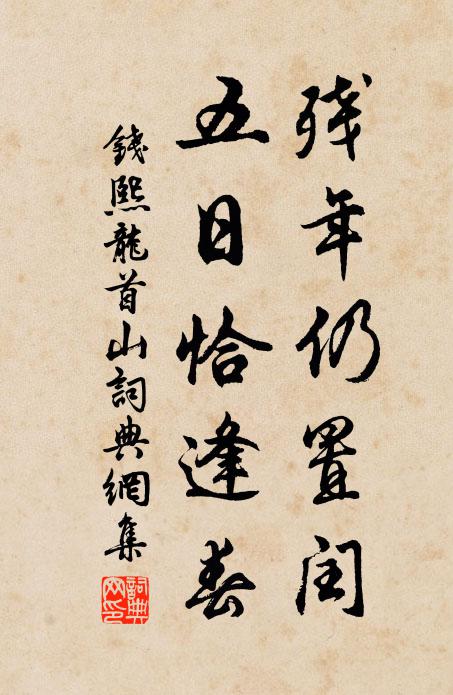 残年仍置闰
五日恰逢春
錢熙龍首山詞典網集
詞典網印